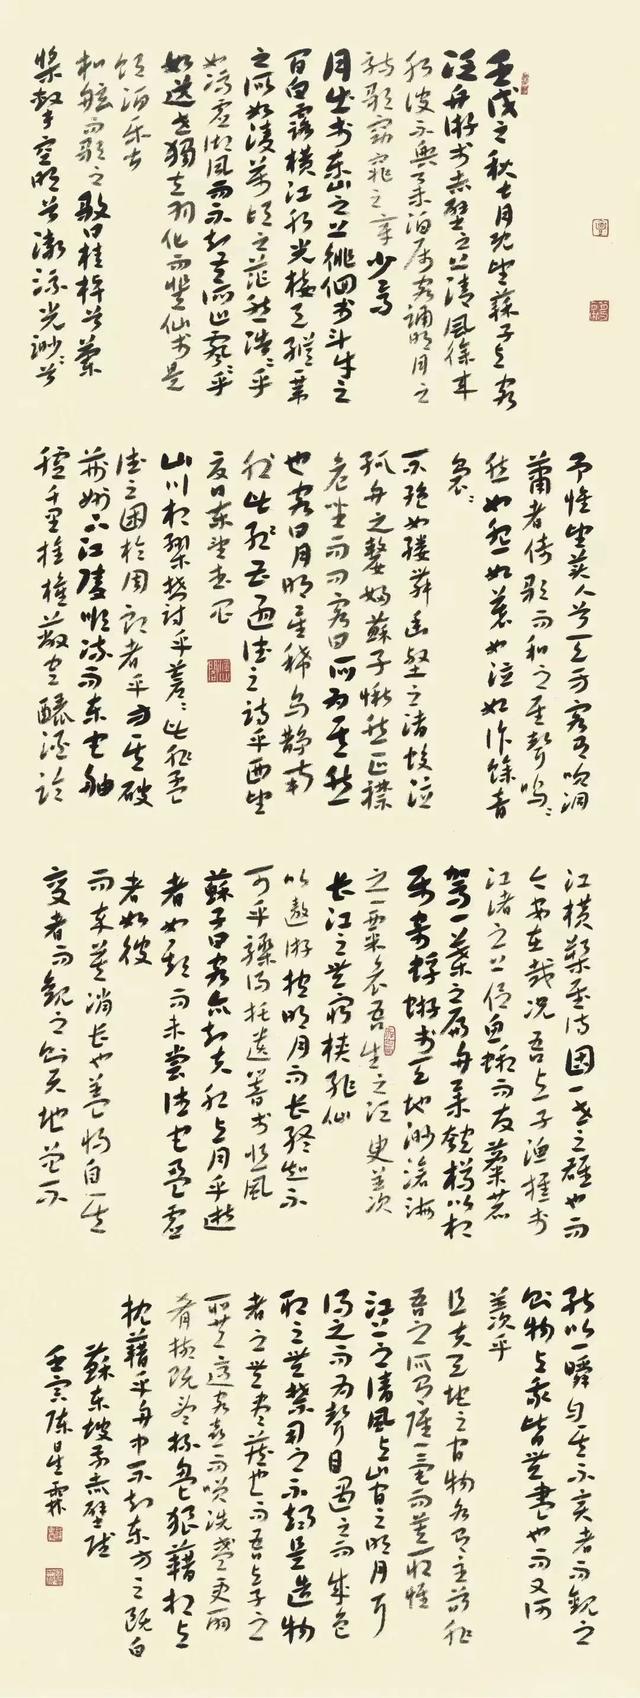 壬戌之秋七月既望蘇子与客
泛舟游於赤壁之下清風徐来
水波不興举酒属客誦明月之
詩歌窈窕之章少焉
月出於東山之上徘徊於斗牛之
間白露横江水光接天縱一葦
之所如凌萬頃之茫然浩浩乎
如馮虚御風而不知其所止飄飄乎
如遺世獨立羽化而登仙於是
飲酒樂甚
扣舷而歌之歌曰桂棹兮蘭
槳擊空明兮溯流光渺渺兮
予懷望美人兮天一方客有吹洞
簫者倚歌而和之其聲嗚嗚
然如怨如慕如泣如訴餘音
裊裊
不絶如縷舞幽壑之潛蛟泣
孤舟之嫠婦蘇子愀然正襟
危坐而问客曰何為其然
也客曰月明星稀烏鵲南
飛此非孟德之詩乎西望
夏口東望武昌
山川相繆鬱乎蒼蒼此非孟
德之困於周郎者乎方其破
荆州下江陵順流而東也舳
艫千里旌旗蔽空釃酒臨
江横槊賦詩固一世之雄也而
今安在哉况吾与子漁樵於
江渚之上侣魚蝦而友麋鹿
駕一葉之扁舟举匏樽以相
属寄蜉蝣於天地渺滄海
之一粟哀吾生之須臾羡
長江之無窮挾飛仙
以遨游抱明月而長終知不
可乎驟得托遺響於悲風
蘇子曰客亦知夫水与月乎逝
者如斯而未嘗往也盈虚
者如彼
而卒莫消長也盖将自其
變者而觀之則天地曾不
能以一瞬自其不變者而觀之
則物与我皆無盡也而又何
羡乎
且夫天地之間物各有主苟非
吾之所有雖一毫而莫取惟
江上之清風与山間之明月耳
得之而為聲目遇之而成色
取之無禁用之不竭是造物
者之無尽藏也而吾与子之
所共適客喜而笑洗盞更酌
肴核既盡杯盤狼藉相与
枕藉乎舟中不知東方之既白
蘇東坡前赤壁賦
壬寅陳星霖